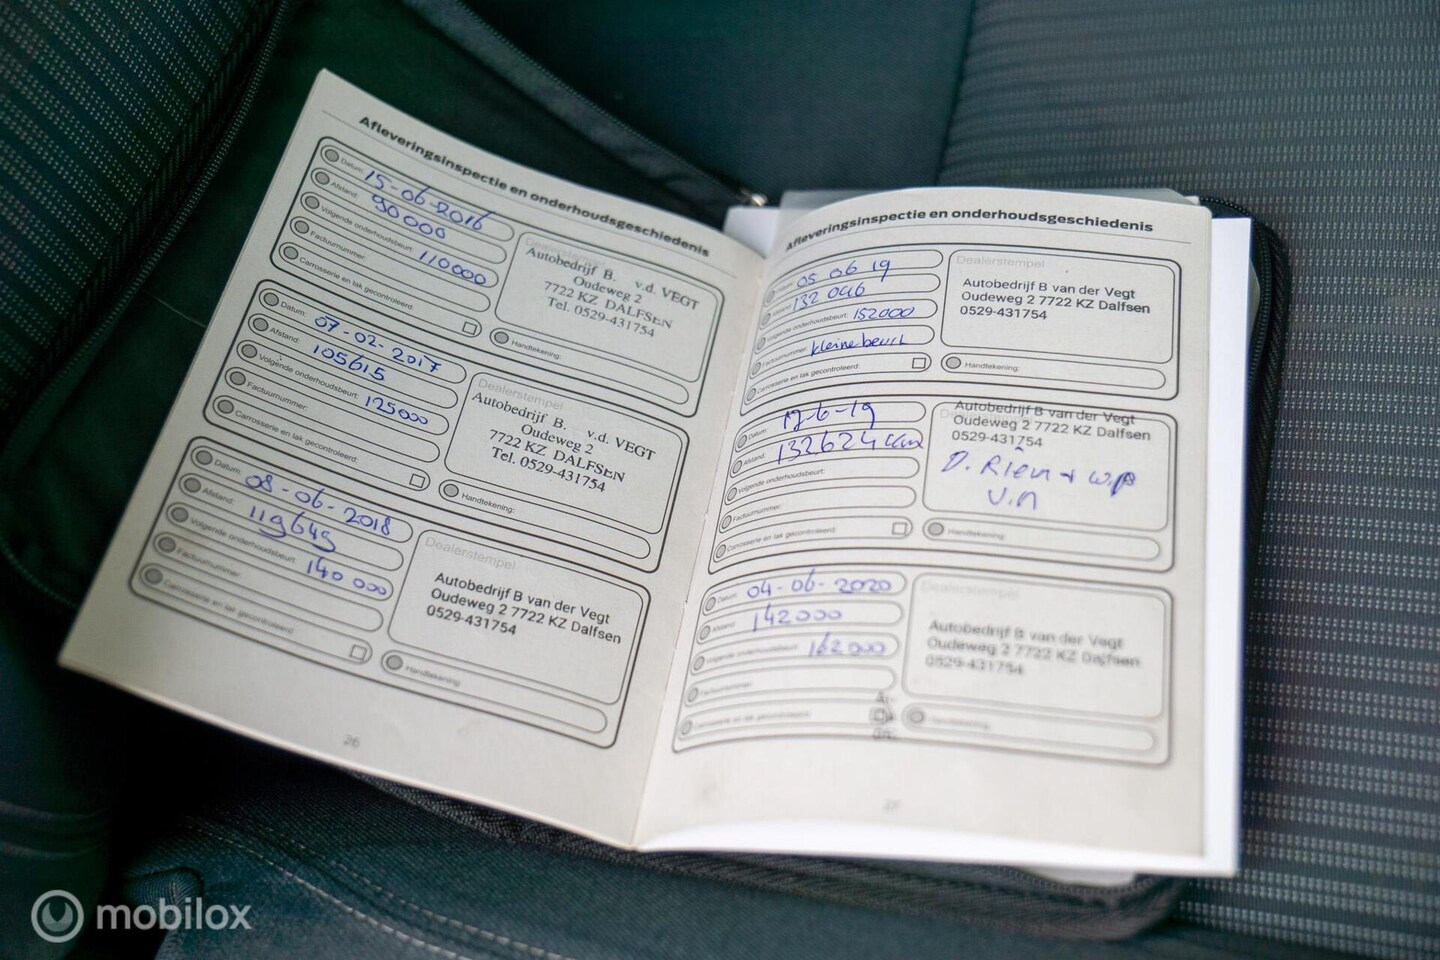 Afleveringsinspectie en onderhoudsgeschiedenis
Datum: 15-06-2016
Afstand: 90000
Volgende onderhoudsbeurt: 110000
Factuurnummer:
Carrosserie en lak gecontroleerd:
Dealerstempel
Autobedrijf B. v.d. VEGT
Oudeweg 2
7722 KZ DALFSEN
Tel. 0529-431754
Handtekening:
Datum: 07-02-2017
Afstand: 105615
Volgende onderhoudsbeurt: 125000
Factuurnummer:
Carrosserie en lak gecontroleerd:
Dealerstempel
Autobedrijf B. v.d. VEGT
Oudeweg 2
7722 KZ DALFSEN
Tel. 0529-431754
Handtekening:
Datum: 08-06-2018
Afstand: 119649
Volgende onderhoudsbeurt: 140000
Factuurnummer:
Carrosserie en lak gecontroleerd:
Dealerstempel
Autobedrijf B van der Vegt
Oudeweg 2 7722 KZ Dalfsen
0529-431754
Handtekening:
26
Afleveringsinspectie en onderhoudsgeschiedenis
Datum: 05 06 19
Afstand: 132 046
Volgende onderhoudsbeurt: 152000
Factuurnummer: kleine beurt
Carrosserie en lak gecontroleerd:
Dealerstempel
Autobedrijf B van der Vegt
Oudeweg 2 7722 KZ Dalfsen
0529-431754
Handtekening:
Datum: 17-6-19
Afstand: 132624
Volgende onderhoudsbeurt:
Factuurnummer:
Carrosserie en lak gecontroleerd:
Autobedrijf B van der Vegt
Oudeweg 2 7722 KZ Dalfsen
0529-431754
D. Riem + w.p
V.n
Handtekening:
Datum: 04-06-2020
Afstand: 142000
Volgende onderhoudsbeurt: 162000
Factuurnummer:
Carrosserie en lak gecontroleerd:
Dealerstempel
Autobedrijf B van der Vegt
Oudeweg 2 7722 KZ Dalfsen
0529-431754
Handtekening:
27
mobilox